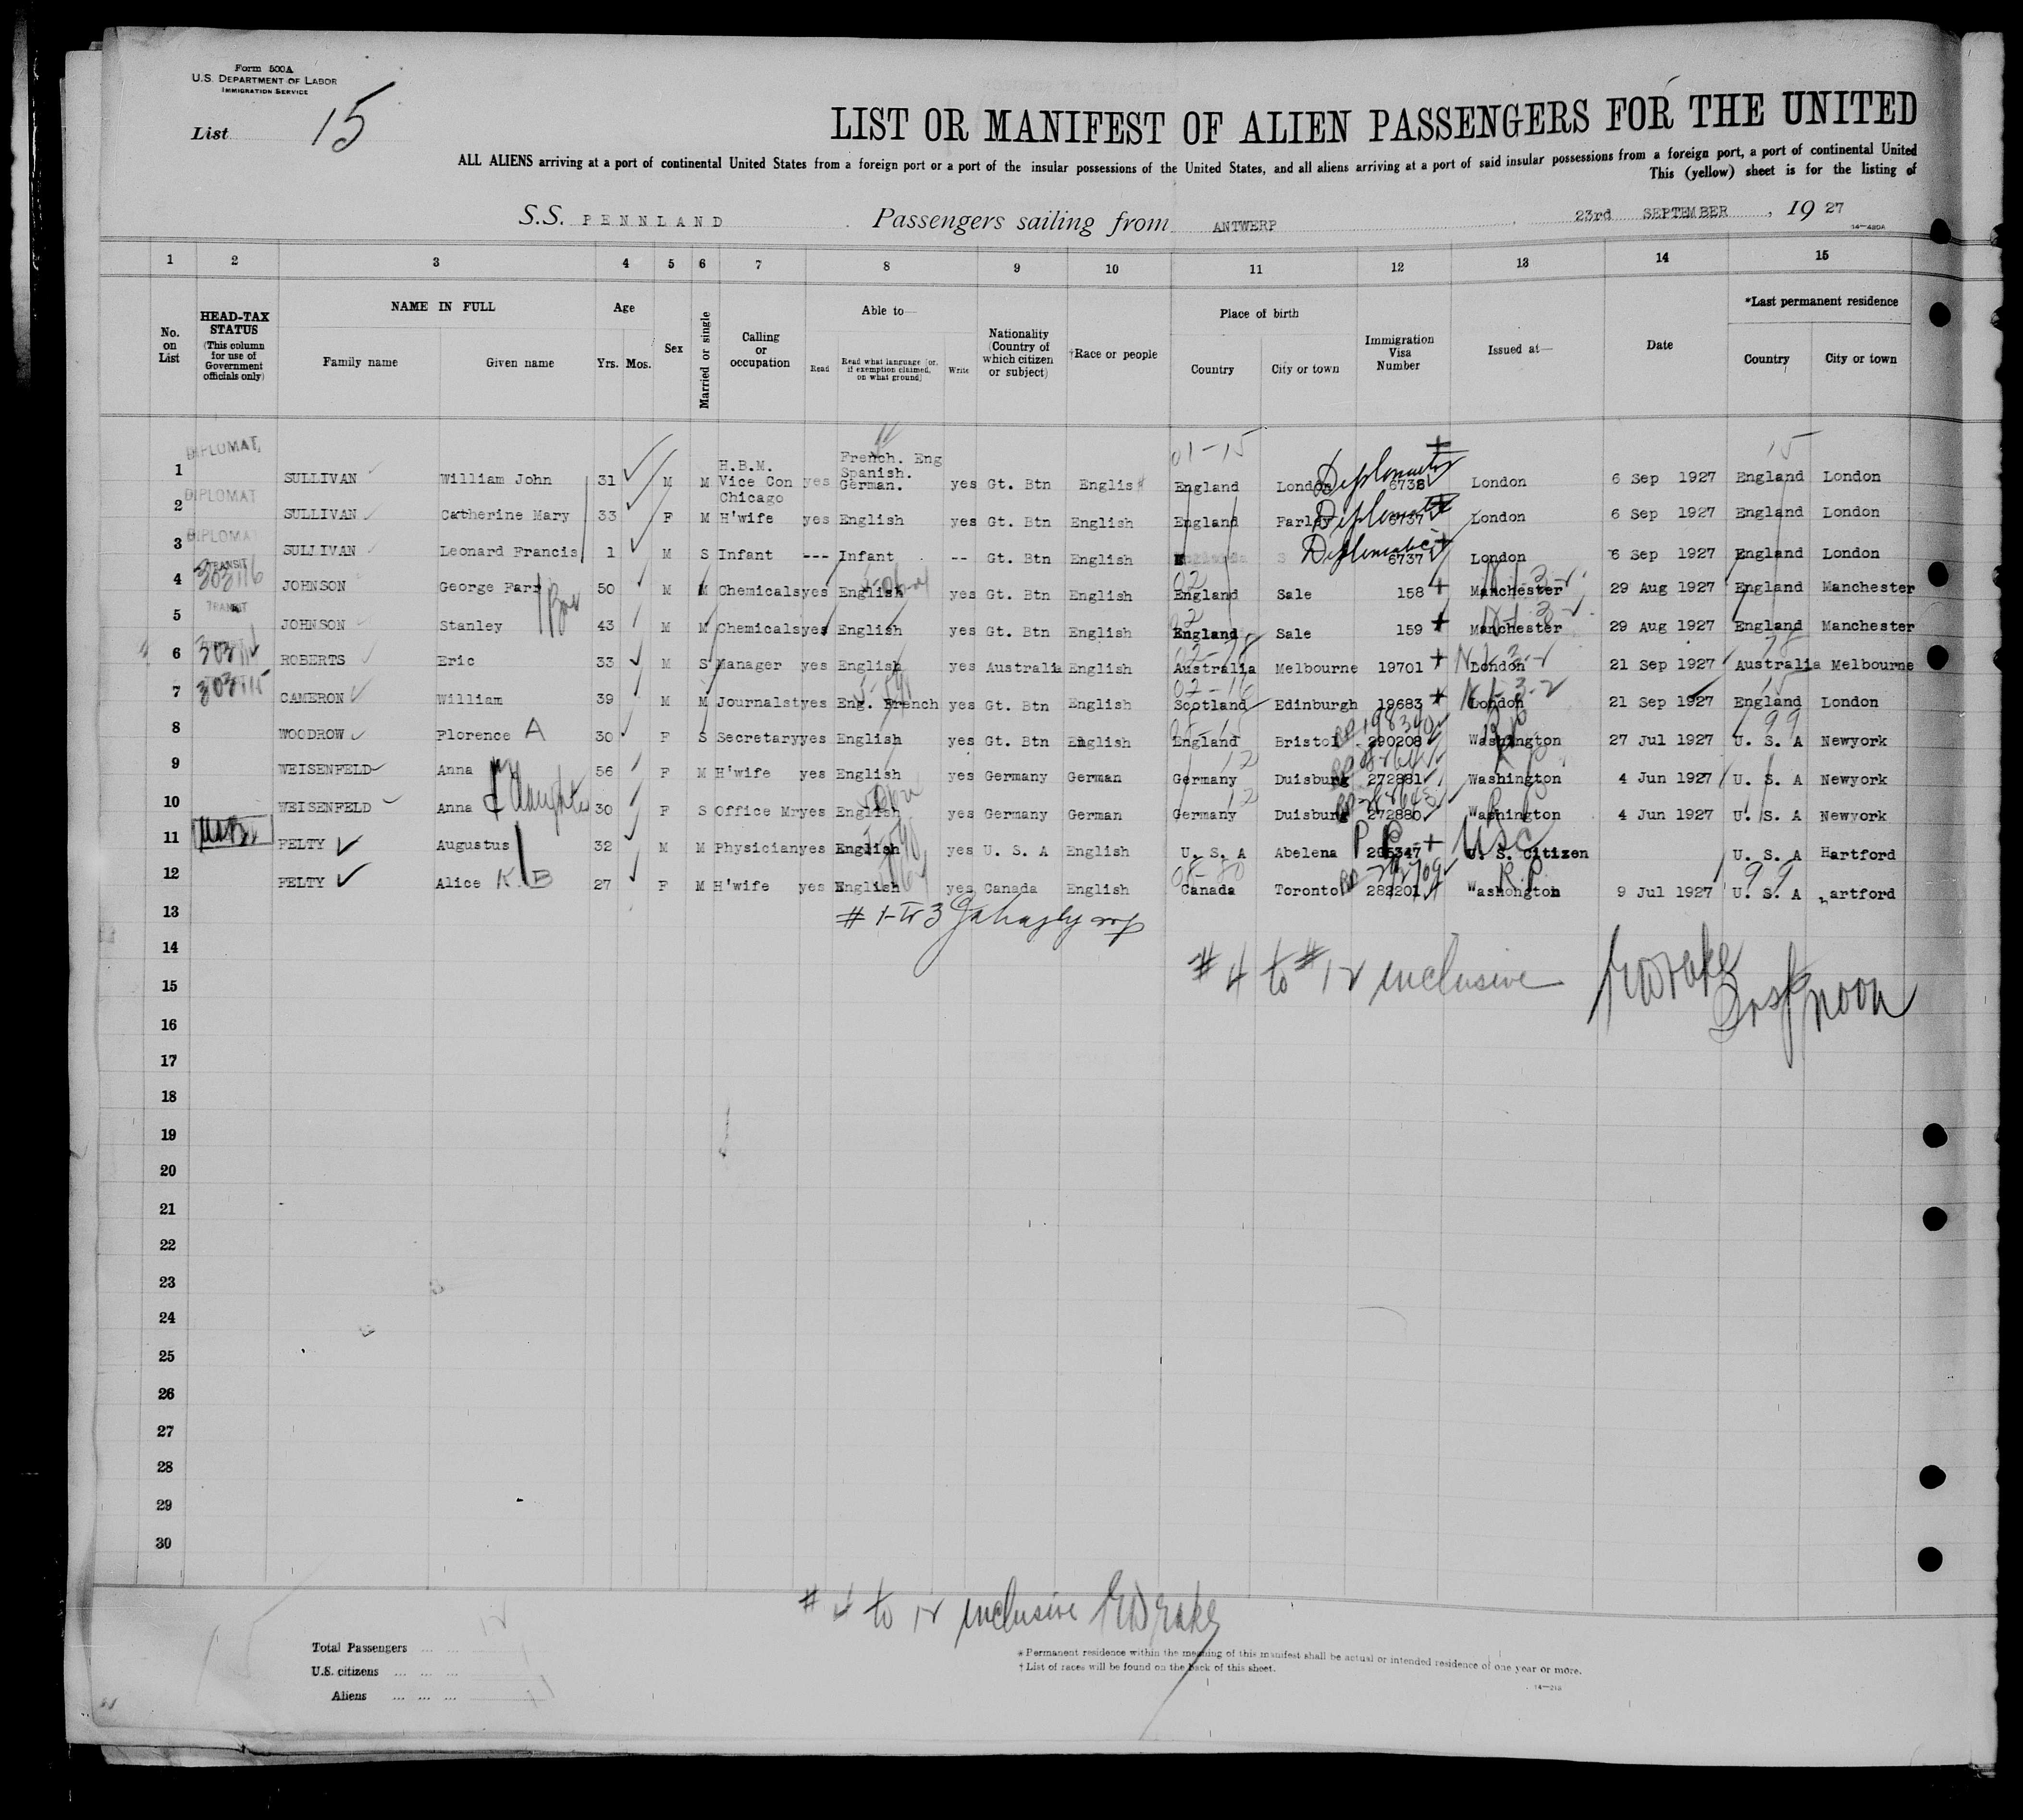 Form 500A
U.S. DEPARTMENT OF LABOR
IMMIGRATION SERVICE
List 15
LIST OR MANIFEST OF ALIEN PASSENGERS FOR THE UNITED
ALL ALIENS arriving at a port of continental United States from a foreign port or a port of the insular possessions of the United States, and all aliens arriving at a port of said insular possessions from a foreign port, a port of continental United
This (yellow) sheet is for the listing of
S.S. PENNLAND Passengers sailing from ANTWERP 23rd SEPTEMBER, 19 27
14-480A
1 2 3 4 5 6 7 8 9 10 11 12 13 14 15
No. on List
HEAD-TAX STATUS (This column for use of Government officials only)
NAME IN FULL Family name Given name
Age Yrs. Mos.
Sex
Married or single
Calling or occupation
Able to— Read Read what language [or, if exemption claimed, on what ground] Write
Nationality (Country of which citizen or subject)
†Race or people
Place of birth Country City or town
Immigration Visa Number
Issued at—
Date
*Last permanent residence Country City or town
1 DIPLOMAT, SULLIVAN William John 31 M M H.B.M. Vice Con Chicago yes French. Eng Spanish. German. yes Gt. Btn English 01-15 England London Diplomatic 6738 London 6 Sep 1927 15 England London
2 DIPLOMAT SULLIVAN Catherine Mary 33 F M H'wife yes English yes Gt. Btn English England Farley Diplomatic 6737 London 6 Sep 1927 England London
3 DIPLOMAT SULLIVAN Leonard Francis 1 M S Infant --- Infant -- Gt. Btn English Diplomatic 6737 London 6 Sep 1927 England London
4 TRANSIT 303116 JOHNSON George Farr 50 M M Chemicals yes English yes Gt. Btn English 02 England Sale 158 Manchester 29 Aug 1927 England Manchester
5 TRANSIT JOHNSON Stanley 43 M M Chemicals yes English yes Gt. Btn English 02 England Sale 159 Manchester 29 Aug 1927 England Manchester
6 ROBERTS Eric 33 M S Manager yes English yes Australia English Australia Melbourne 19701 London 21 Sep 1927 78 Australia Melbourne
7 303115 CAMERON William 39 M M Journalst yes Eng. French yes Gt. Btn English 02-16 Scotland Edinburgh 19683 London 21 Sep 1927 15 England London
8 WOODROW Florence A 30 F S Secretary yes English yes Gt. Btn English England Bristol 290208 Washington RP 27 Jul 1927 99 U. S. A Newyork
9 WEISENFELD Anna 56 F M H'wife yes English yes Germany German 12 Germany Duisburg 272881 Washington 4 Jun 1927 U. S. A Newyork
10 WEISENFELD Anna daughter 30 F S Office Mr yes English yes Germany German 12 Germany Duisburg 272880 Washington RP 4 Jun 1927 U. S. A Newyork
11 FELTY Augustus 32 M M Physician yes English yes U. S. A English U. S. A Abelena PP 295347 USC U. S. Citizen U. S. A Hartford
12 FELTY Alice K. B 27 F M H'wife yes English yes Canada English Canada Toronto 282201 RP Washongton 9 Jul 1927 99 U. S. A artford
13 # 1 to 3
14
# 4 to # 12 inclusive
15
16
17
18
19
20
21
22
23
24
25
26
27
28
29
30
# 4 to 12 inclusive
Total Passengers ... ... 12
U.S. citizens ... ... ...
Aliens ... ... ...
*Permanent residence within the meaning of this manifest shall be actual or intended residence of one year or more.
†List of races will be found on the back of this sheet.